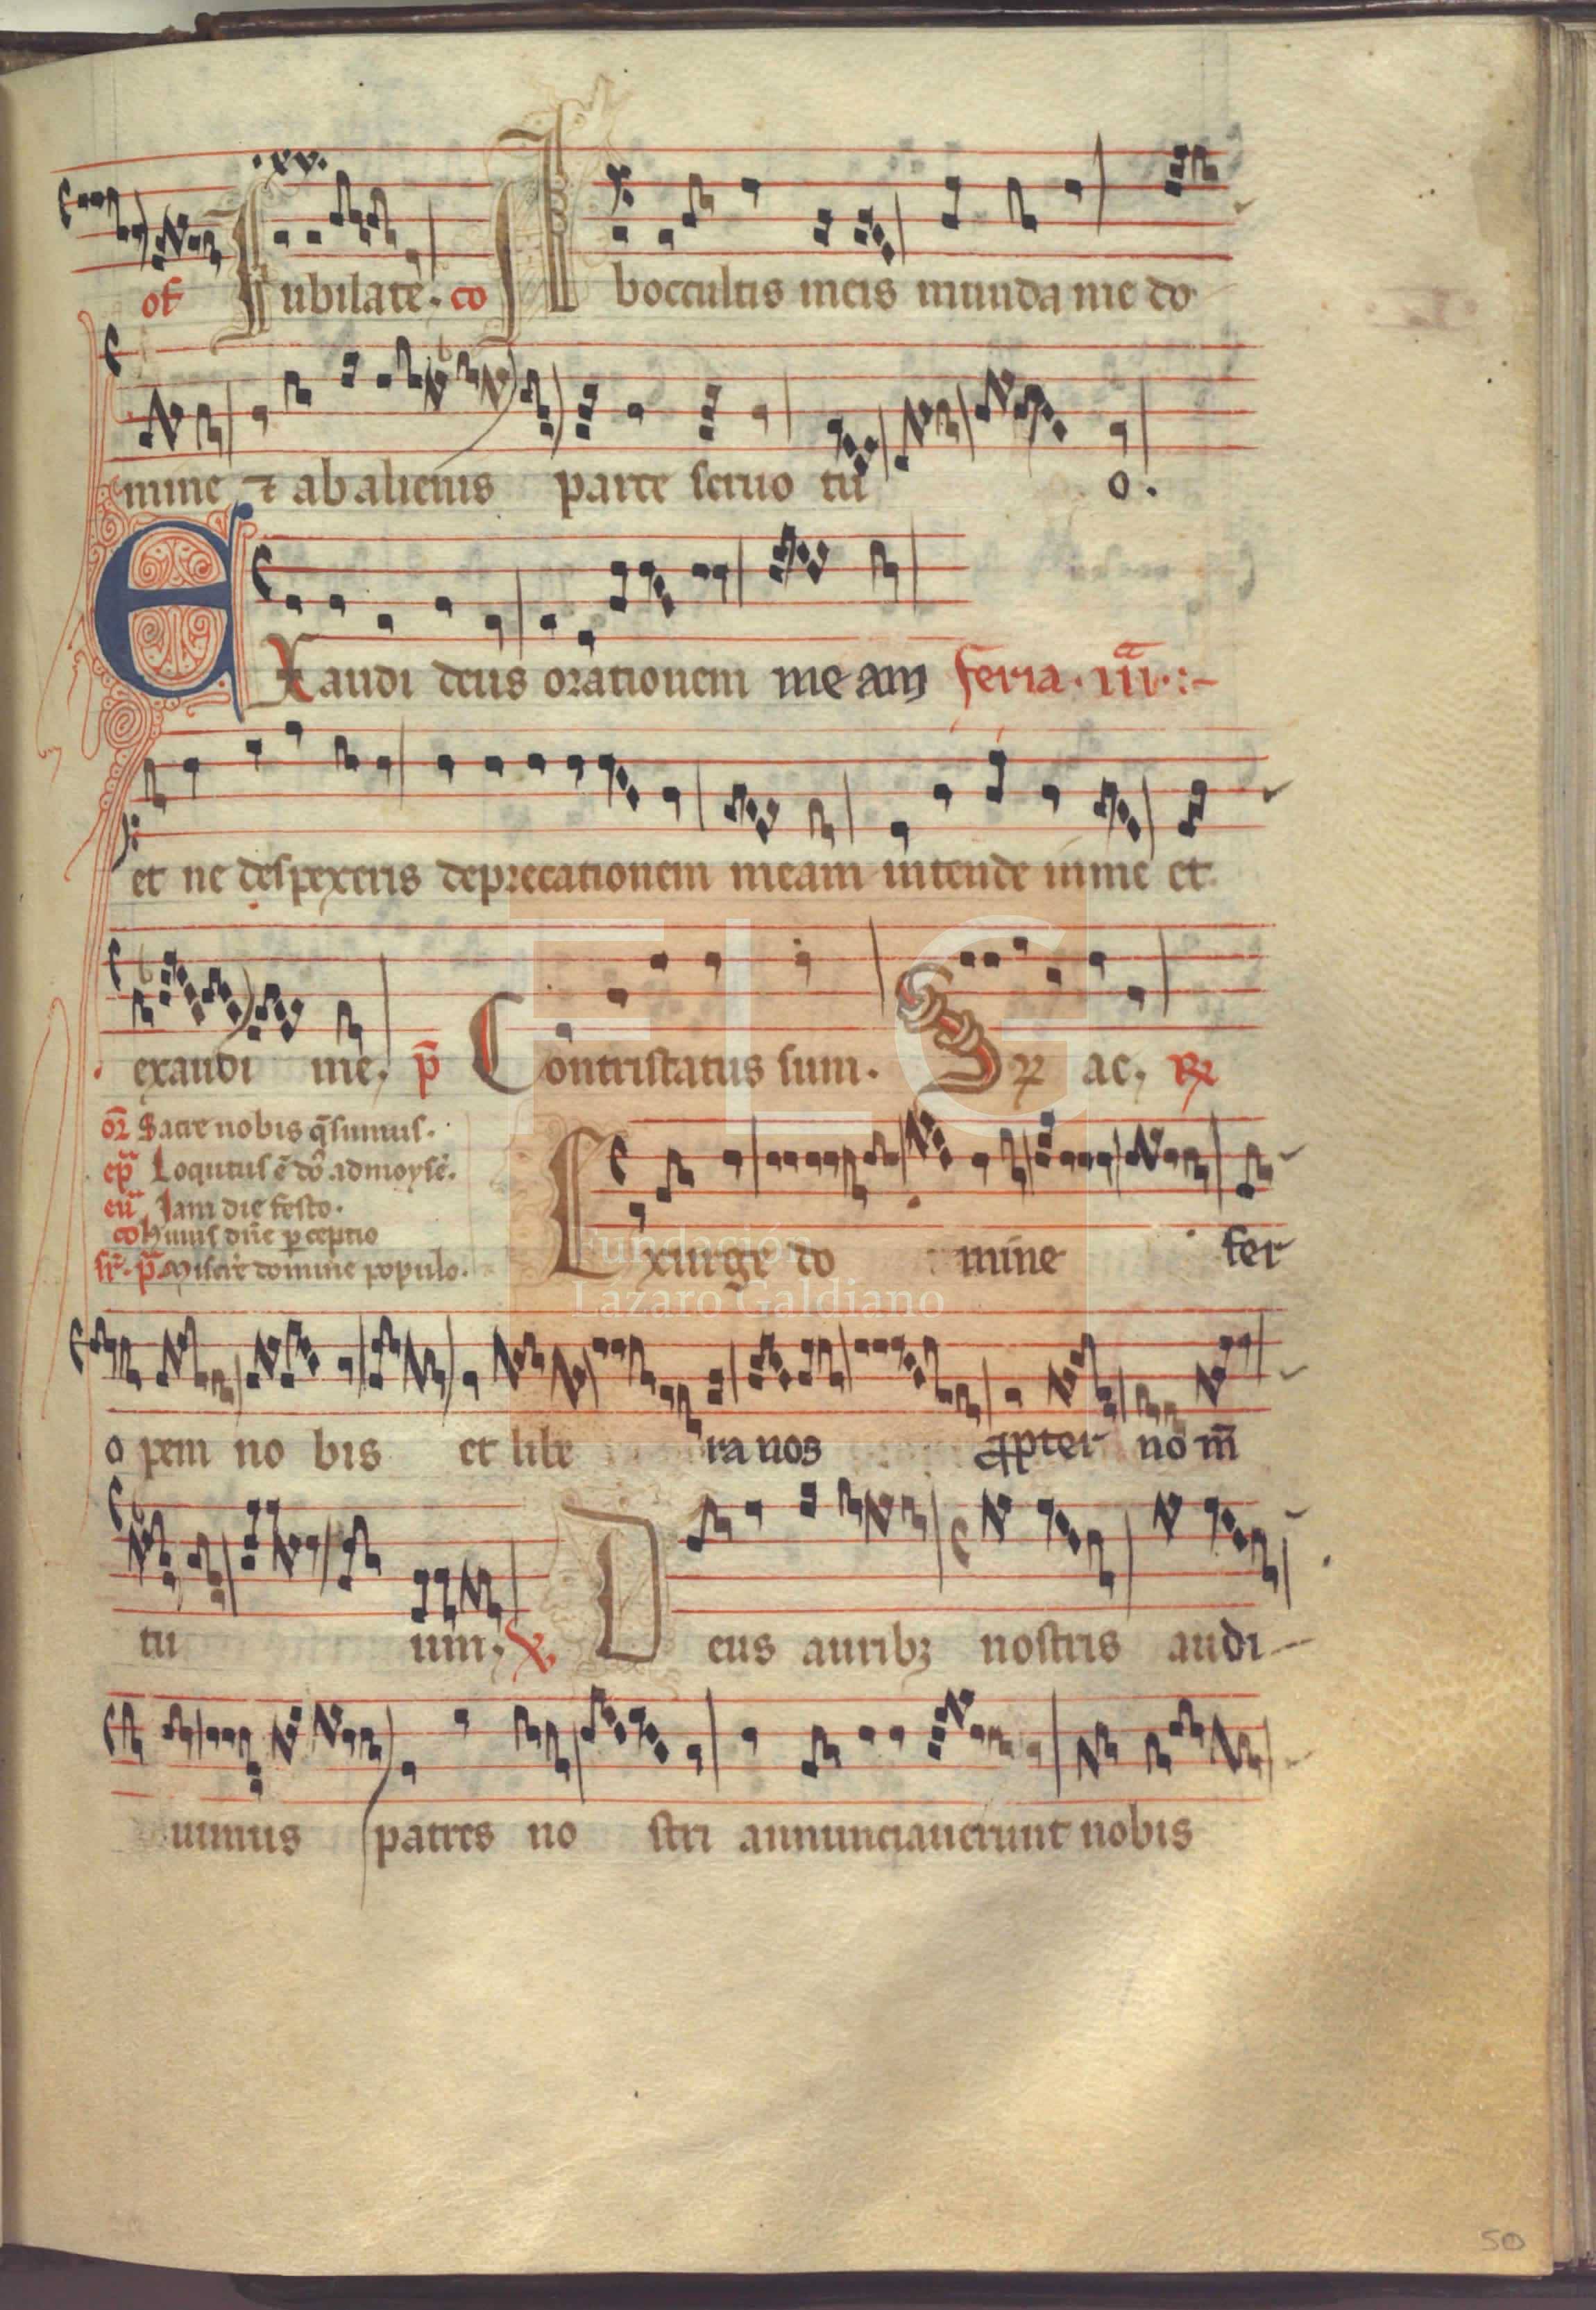 .xv.
of Iubilate. co Aboccultis meis munda me do
mine ⁊ ab alienis parce seruo tu o.
EXaudi deus orationem meam feria .iii.ª :-
et ne despexeris deprecationem meam intende in me et
exaudi me, p̄ Contristatus sum. Sꝝ ac, ℞
or̄ Sacre nobis q̄sumus.
ep̄a Loqutus ē dn̄s ad moysē.
eu̅a Iam die festo.
co Huius dn̄e perceptio
sr̄. p̄. Miserē domine populo.
Exurge do mine fer
opem no bis et libe ra nos ꝓpter no m̄
tu um, ℣. Deus auribꝫ nostris audi-
uimus patres no stri annunciauerunt nobis
50
FLG
Fundación
Lázaro Galdiano